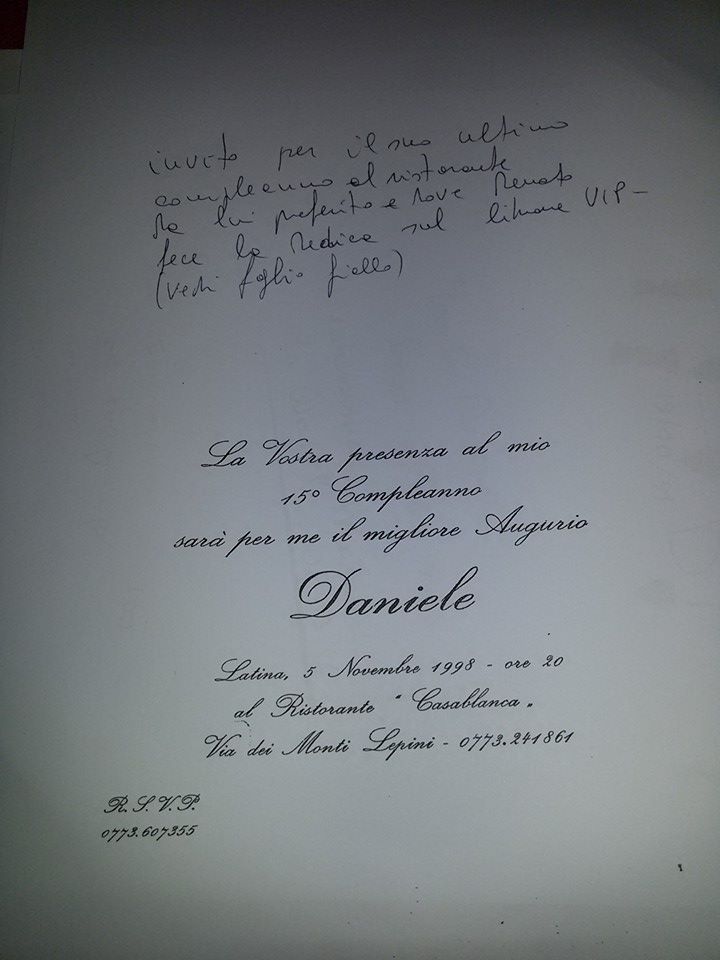 invito per il suo ultimo
compleanno al ristorante
da lui preferito e dove Renato
fece la dedica sul VIP-
(vedi foglio giallo)
La Vostra presenza al mio
15° Compleanno
sarà per me il migliore Augurio
Daniele
Latina, 5 Novembre 1998 - ore 20
al Ristorante "Casablanca"
Via dei Monti Lepini - 0773.241861
R.S.V.P.
0773.607355